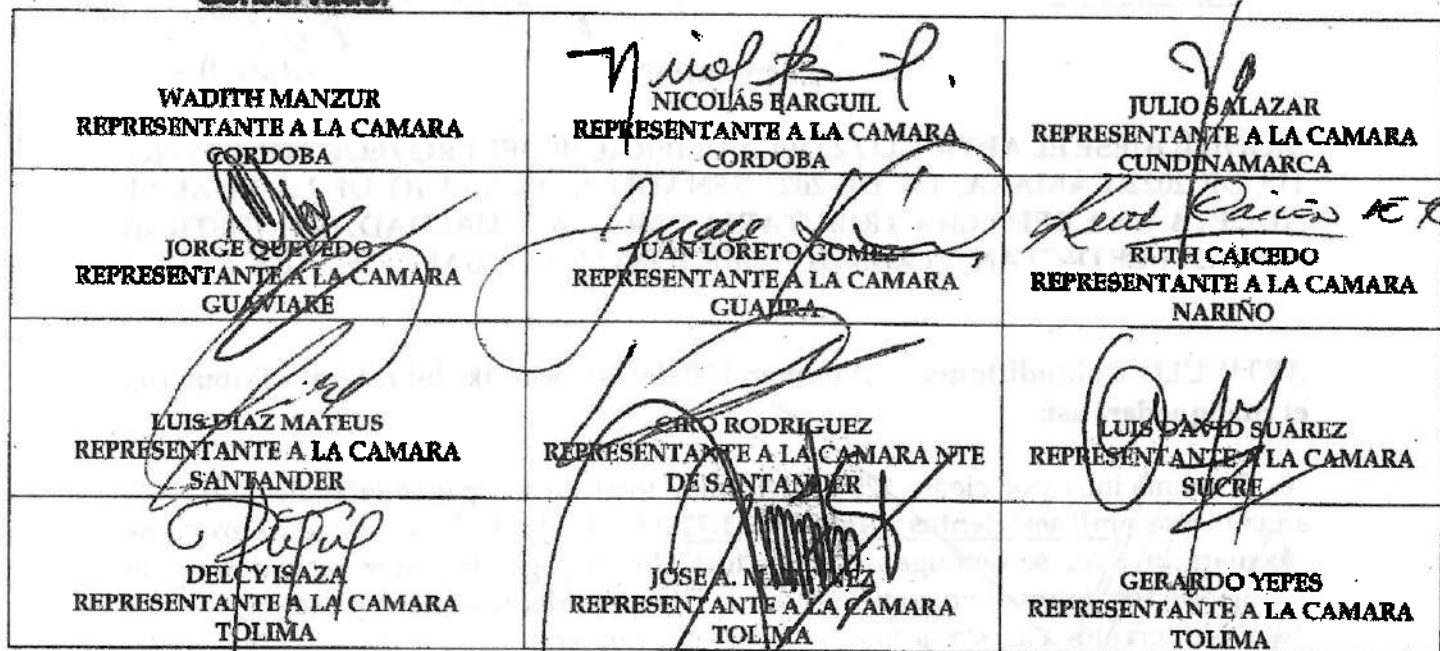 Conservador
WADITH MANZUR
REPRESENTANTE A LA CAMARA
CORDOBA
NICOLÁS BARGUIL
REPRESENTANTE A LA CAMARA
CORDOBA
JULIO SALAZAR
REPRESENTANTE A LA CAMARA
CUNDINAMARCA
JORGE QUEVEDO
REPRESENTANTE A LA CAMARA
GUAVIARE
JUAN LORETO GOMEZ
REPRESENTANTE A LA CAMARA
GUAJIRA
RUTH CAICEDO
REPRESENTANTE A LA CAMARA
NARIÑO
LUIS DÍAZ MATEUS
REPRESENTANTE A LA CAMARA
SANTANDER
CIRO RODRIGUEZ
REPRESENTANTE A LA CAMARA NTE
DE SANTANDER
LUIS DAVID SUÁREZ
REPRESENTANTE A LA CAMARA
SUCRE
DELCY ISAZA
REPRESENTANTE A LA CAMARA
TOLIMA
JOSE A.
REPRESENTANTE A LA CAMARA
TOLIMA
GERARDO YEPES
REPRESENTANTE A LA CAMARA
TOLIMA